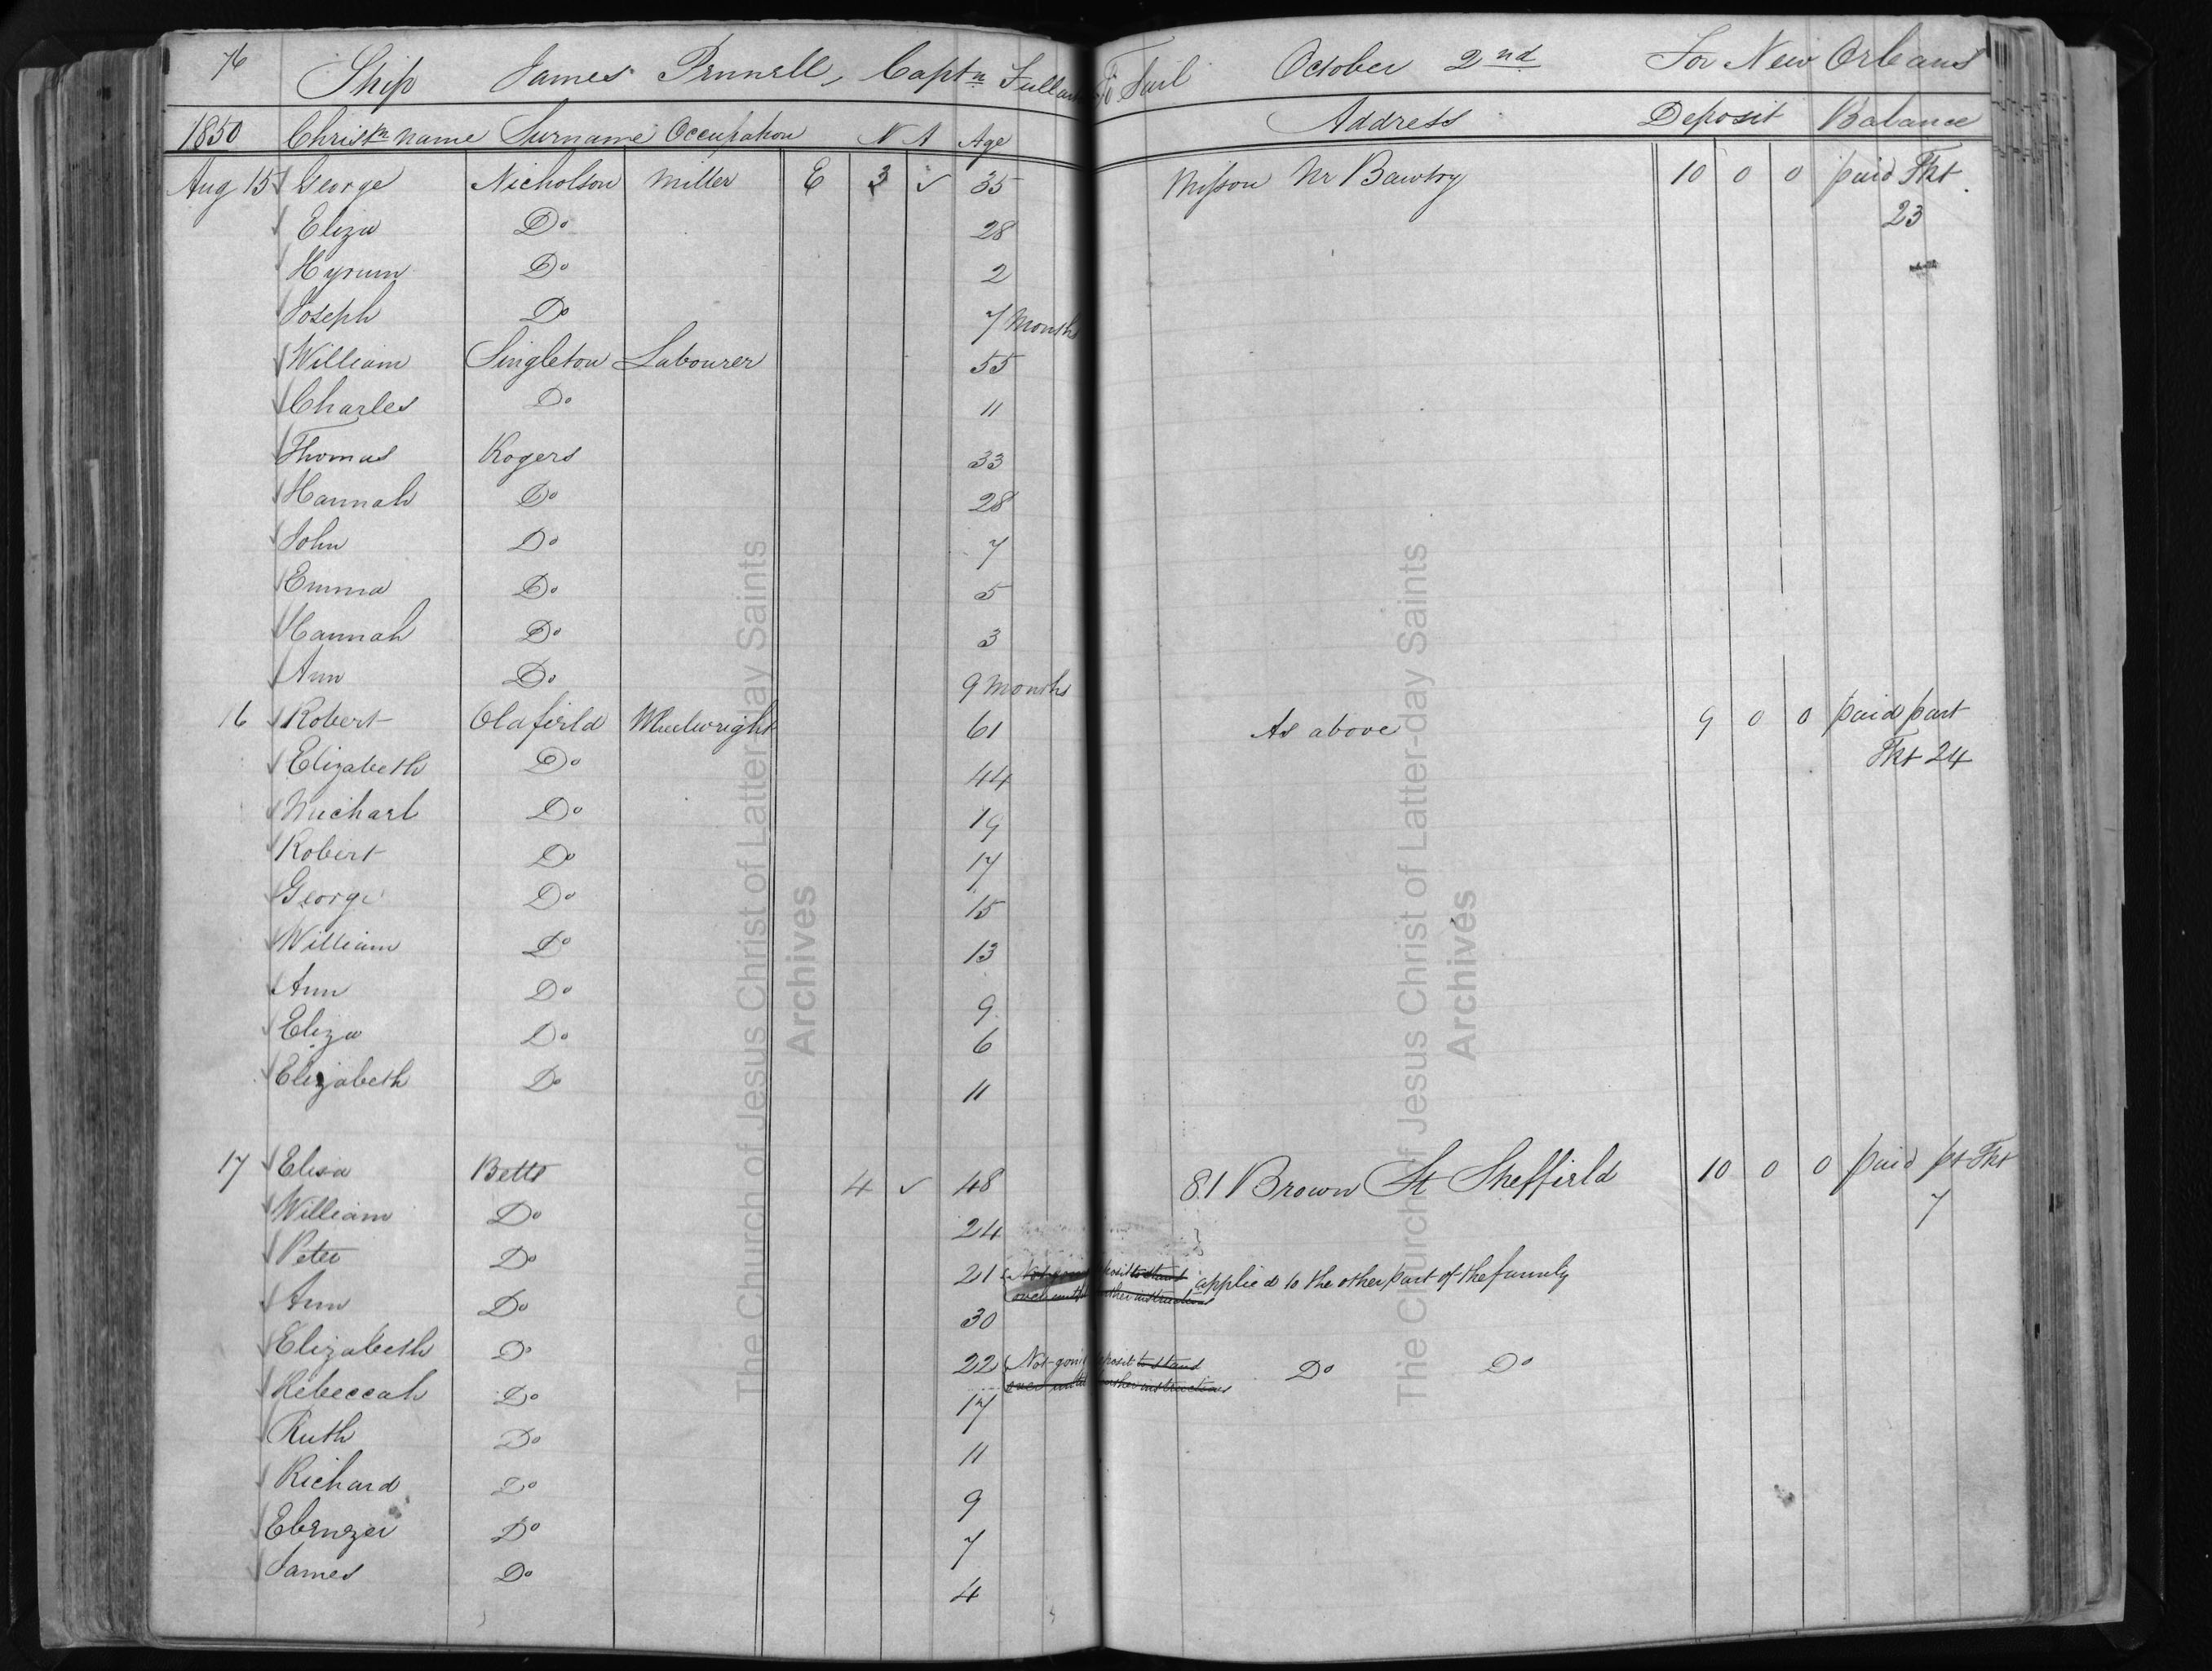 76 Ship James Pennell, Captn Fullar To Sail October 2nd For New Orleans
1850 Christn name Surname Occupation N A Age Address Deposit Balance
Aug 15 George Nicholson Miller E 3 ✓ 35 Misson Nr Bawtry 10 0 0 paid Tkt
Eliza Do 28 23
Hyrum Do 2
Joseph Do 7 Months
William Singleton Labourer 55
Charles Do 11
Thomas Rogers 33
Hannah Do 28
John Do 7
Emma Do 5
Hannah Do 3
Ann Do 9 Months
16 Robert Oldfield Wheelwright 61 As above 9 0 0 paid part
Elizabeth Do 44 Tkt 24
Michael Do 19
Robert Do 17
George Do 15
William Do 13
Ann Do 9
Eliza Do 6
Elizabeth Do 11
17 Elisa Betts 4 ✓ 48 81 Brown St Sheffield 10 0 0 paid pt Tkt
William Do 24 7
Peter Do 21 Not going deposit to stand applied to the other part of the family
over until further instructions
Ann Do 30
Elizabeth Do 22 Not going deposit to stand Do Do
over until further instructions
Rebeccah Do 17
Ruth Do 11
Richard Do 9
Ebenezer Do 7
James Do 4
The Church of Jesus Christ of Latter-day Saints
Archives
The Church of Jesus Christ of Latter-day Saints
Archives